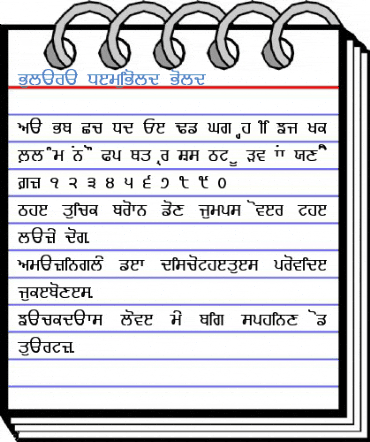 ਭੁਲੳਰੳ ਧੲਮਭਿੋਲਦ ਭੋਲਦ
ਅੳ ਭਬ ਛਚ ਧਦ ਓੲ ਢਡ ਘਗ ੍ਹਹ ੀਿ ਝਜ ਖਕ
ਲ਼ਲ ੰਮ ਂਨ ੌੋ ਫਪ ਥਤ ੍ਰਰ ਸ਼ਸ ਠਟ ੂੁ ੜਵ ਾਂਾ ਯਣ ੈੇ
ਗ਼ਜ਼ ੧ ੨ ੩ ੪ ੫ ੬ ੭ ੮ ੯ ੦
ਠਹੲ ਤੁਚਿਕ ਬਰੋਾਨ ਡੋਣ ਜੁਮਪਸ ੋਵੲਰ ਟਹੲ
ਲੳਜ਼ੇ ਦੋਗ.
ਅਮੳਜ਼ਨਿਗਲੇ ਡੲਾ ਦਸਿਚੋਟਹੲਤੁੲਸ ਪਰੋਵਦਿੲ
ਜੁਕੲਬੋਣੲਸ.
ਛੳਚਕਦੳਾਸ ਲੋਵੲ ਮੇ ਬਗਿ ਸਪਹਨਿਣ ੋਡ
ਤੁੳਰਟਜ਼.